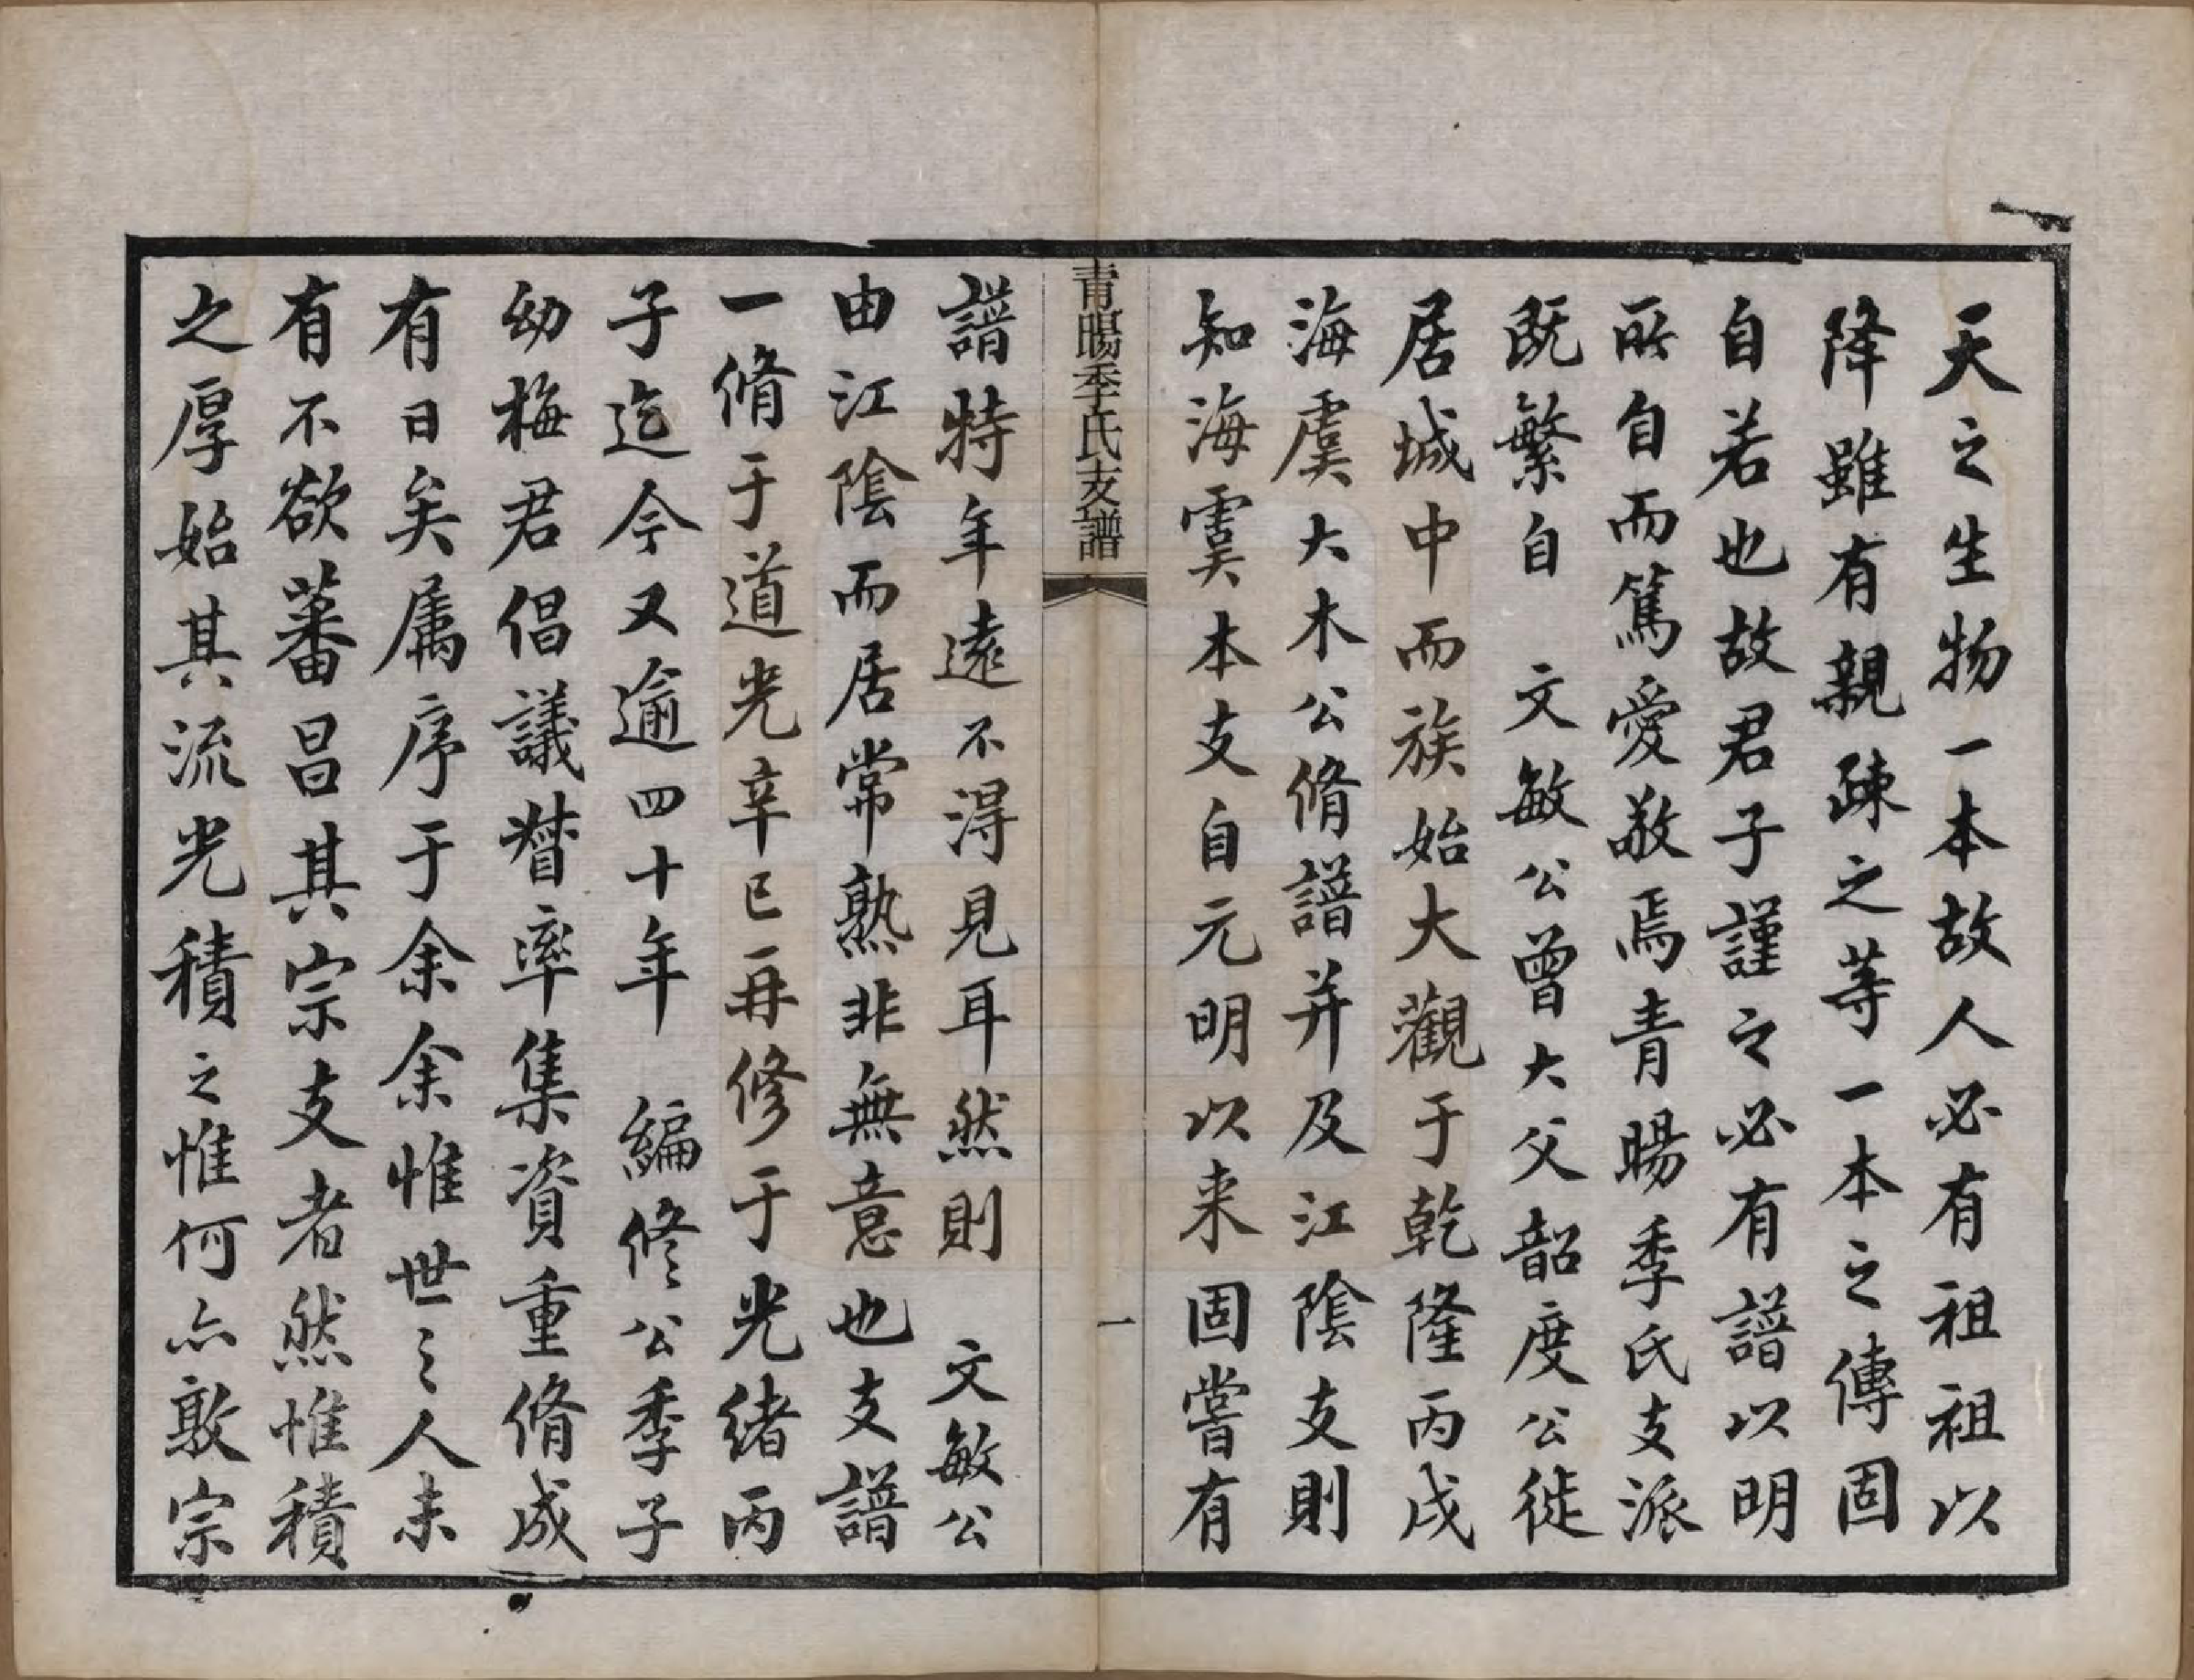 天之生物一本故人必有祖祖以
降雖有親疎之等一本之傳固
自若也故君子謹之必有譜以明
所自而篤愛敬焉青暘季氏支派
既繁自　文敏公曾大父韶度公徙
居城中而族始大觀于乾隆丙戌
海虞大木公脩譜并及江陰支則
知海虞本支自元明以来固嘗有
青暘季氏支譜
一
譜特年遠不得見耳然則　文敏公
由江陰而居常熟非無意也支譜
一脩于道光辛巳再修于光緒丙
子迄今又逾四十年　編修公季子
幼梅君倡議督率集資重脩成
有日矣属序于余余惟世〻人未
有不欲蕃昌其宗支者然惟積
之厚始其流光積之惟何亦敦宗